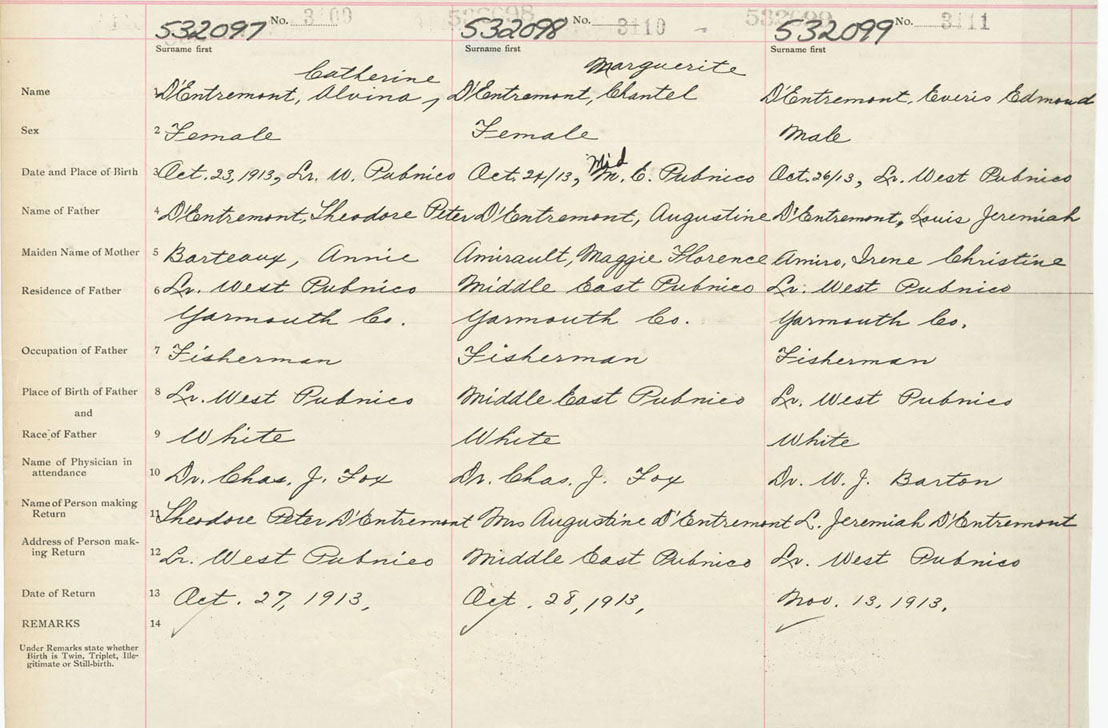 532097 No. 3109 532098 No. 3110 532099 No. 3111
Surname first Surname first Surname first
Catherine Marguerite
Name 1 D'Entremont, Alvina, D'Entremont, Chantel D'Entremont, Everis Edmond
Sex 2 Female Female Male
Mid
Date and Place of Birth 3 Oct. 23, 1913, Lr. W. Pubnico Oct. 24/13, M. E. Pubnico Oct. 26/13, Lr. West Pubnico
Name of Father 4 D'Entremont, Theodore Peter D'Entremont, Augustine D'Entremont, Louis Jeremiah
Maiden Name of Mother 5 Barteaux, Annie Amirault, Maggie Florence Amiro, Irene Christine
Residence of Father 6 Lr. West Pubnico Middle East Pubnico Lr. West Pubnico
Yarmouth Co. Yarmouth Co. Yarmouth Co.
Occupation of Father 7 Fisherman Fisherman Fisherman
Place of Birth of Father 8 Lr. West Pubnico Middle East Pubnico Lr. West Pubnico
and
Race of Father 9 White White White
Name of Physician in
attendance 10 Dr. Chas. J. Fox Dr. Chas. J. Fox Dr. W. J. Barton
Name of Person making
Return 11 Theodore Peter D'Entremont Mrs Augustine D'Entremont L. Jeremiah D'Entremont
Address of Person mak-
ing Return 12 Lr. West Pubnico Middle East Pubnico Lr. West Pubnico
Date of Return 13 Oct. 27, 1913, Oct. 28, 1913, Nov. 13, 1913,
REMARKS 14
Under Remarks state whether
Birth is Twin, Triplet, Ille-
gitimate or Still-birth.